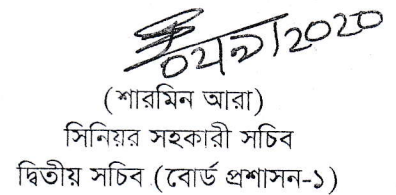 (শারমিন আরা)
সিনিয়র সহকারী সচিব
দ্বিতীয় সচিব (বোর্ড প্রশাসন-১)